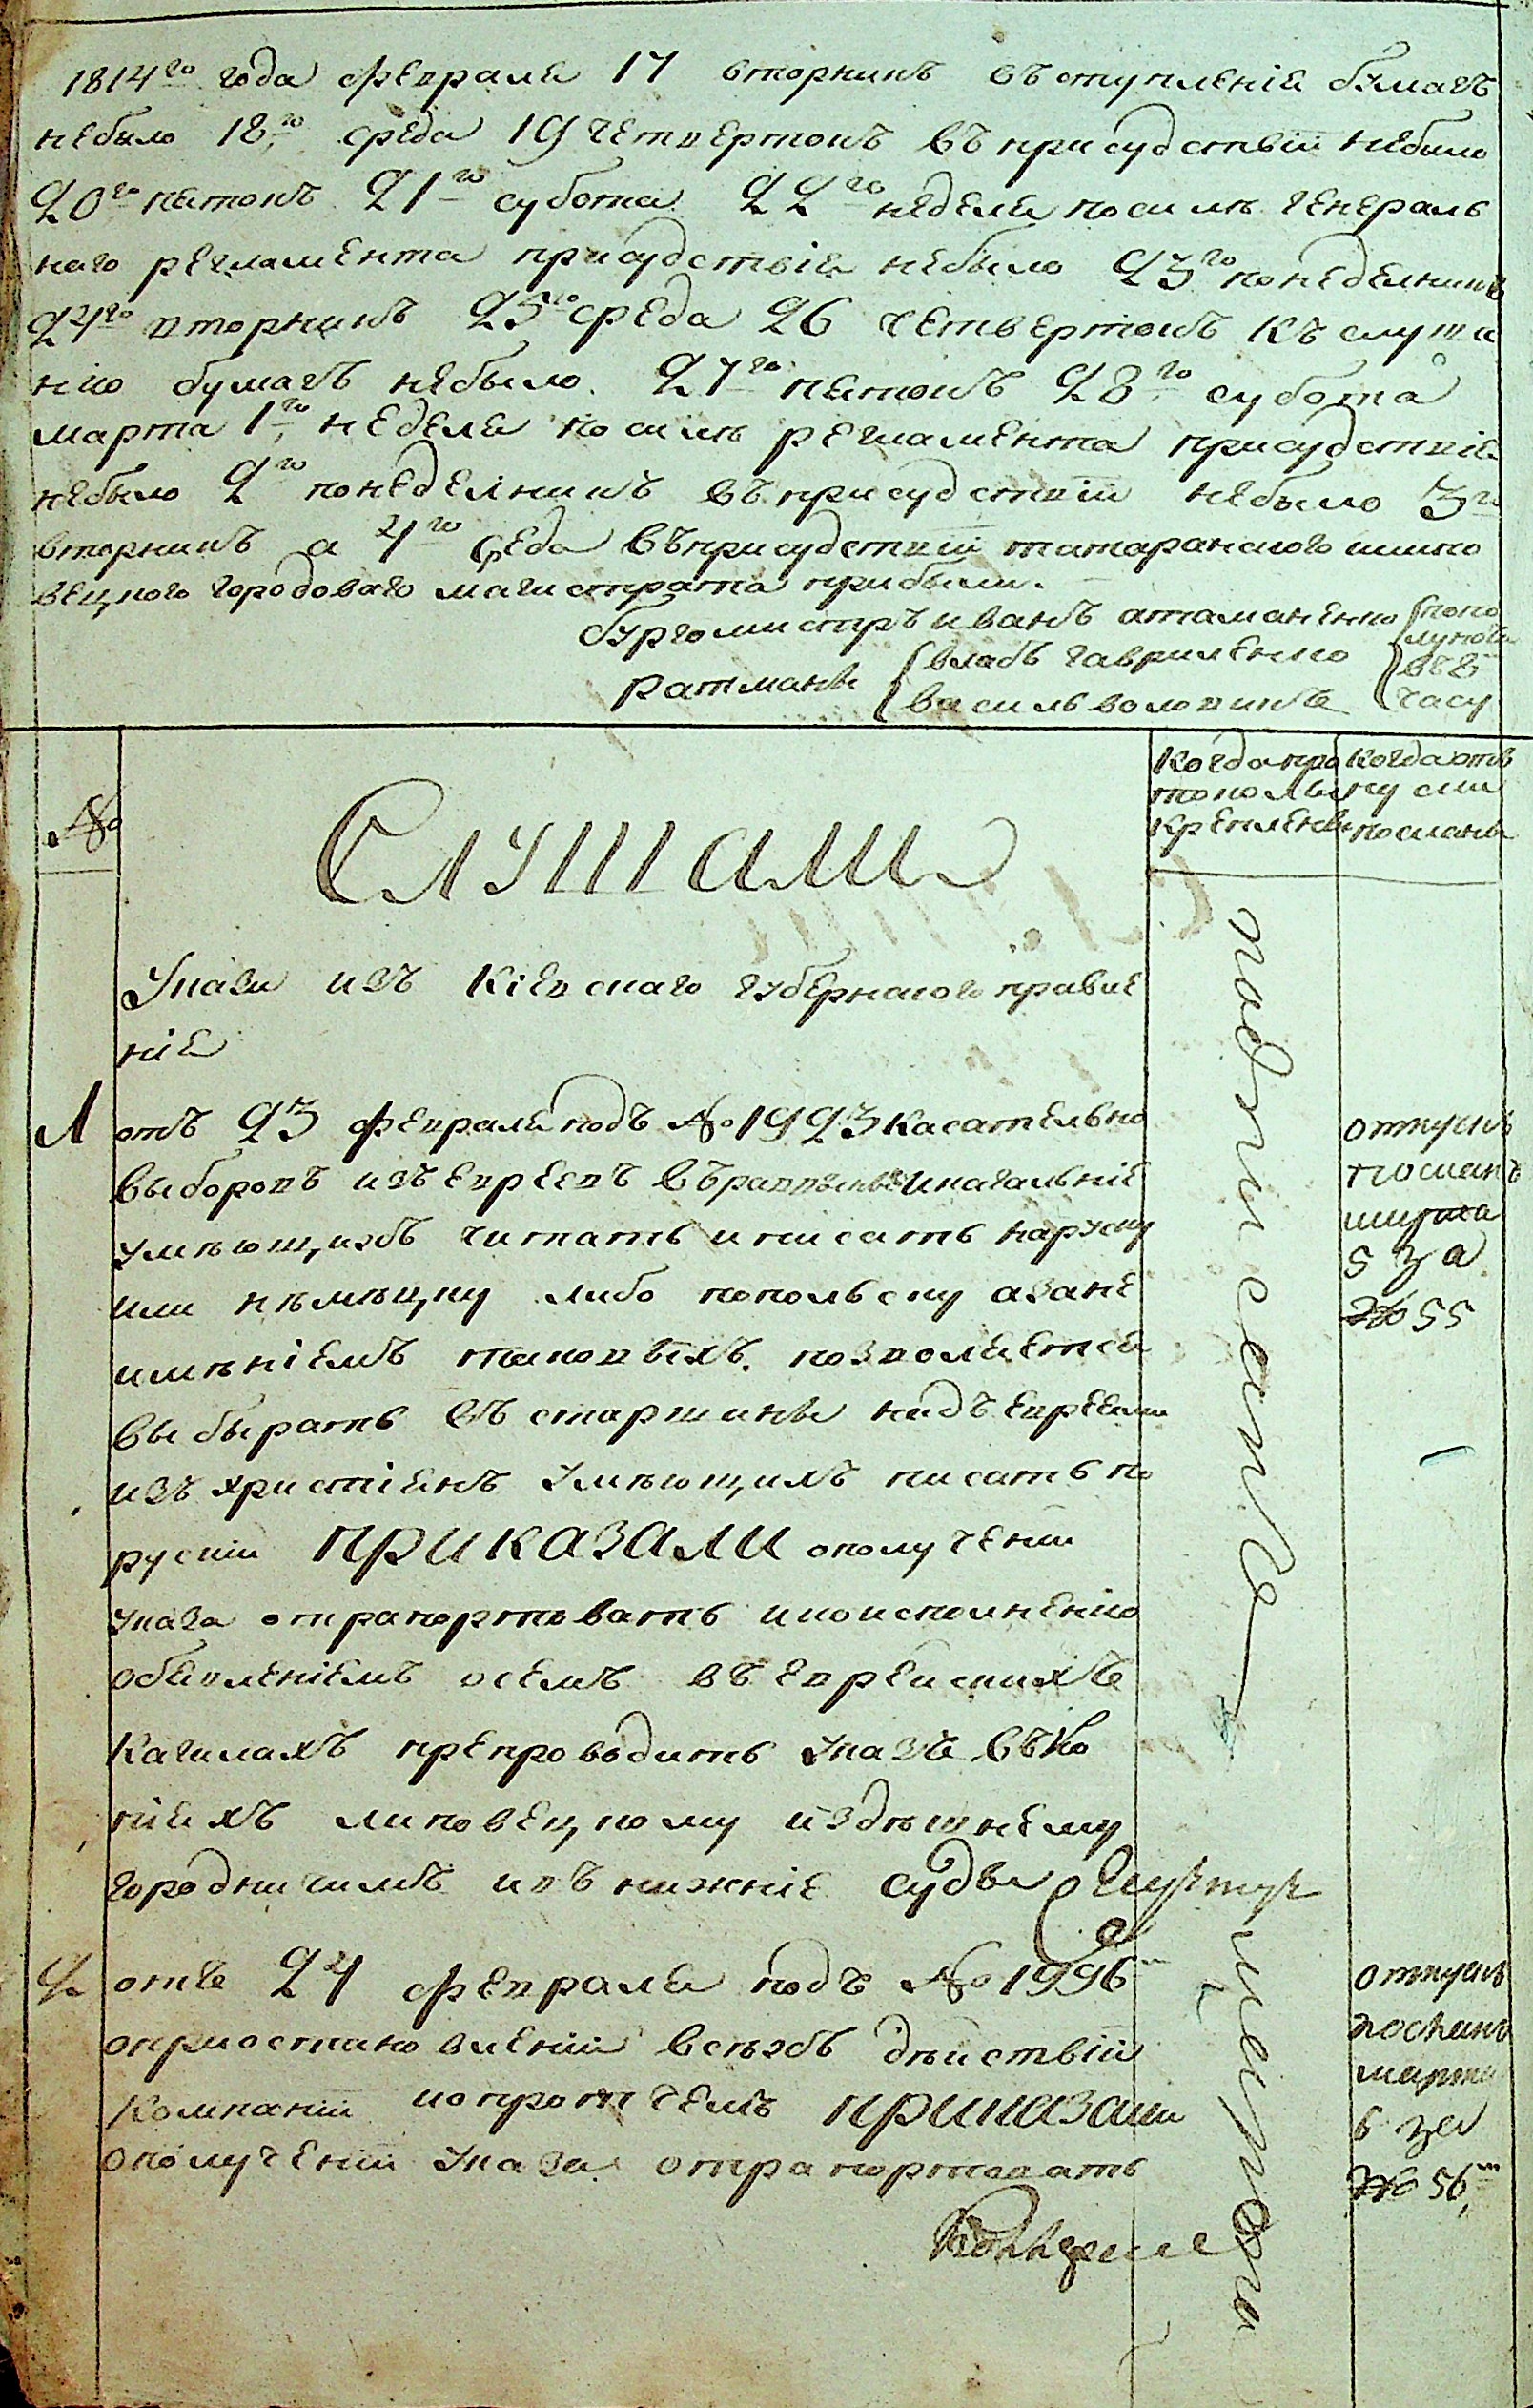 1814го года февраля 17 вторникъ въступленія бумагъ
небыло 18го среда 19 четвертокъ въ присудствіи небыло
20го пятокъ 21го субота 22го неделя посилѣ генераль
наго регламента присудствія небыло 23го понеделникъ
24го вторникъ 25го среда 26 четвертокъ къ слуша
нію бумагъ небыло. 27го пятокъ 28го субота
марта 1го неделя посилѣ регламента присудствія
небыло 2го понеделникъ въ присудствіи небыло 3го
вторникъ а 4го среда въ присудствіи липо
вецкого городоваго магистрата прибыли.
бургомистръ иванъ атаманенко
ратманы
влабъ гавриленко
василь воловикъ
попо
лунočи
въ 8
часу
№
Слушали
когда про
токолъ
крепленъ
когда отъ
пуски
посланы
Указы изъ Кіевскаго губернскаго правле
ніе
1 отъ 23 февраля подъ №1923 касательно
выборовъ изъ евреевъ въ кагальніе
умѣющихъ читать и писать поруску
или нѣмѣцку либо попольску азане
имѣніемъ таковыхъ позволяется
выбырать въ старшины надъ евреями
изъ христіянъ умѣющихъ писать по
руски ПРИКАЗАЛИ ополученіи
указа отрапортовать ипоисполненію
объявленіемъ осемъ въ еврейскихъ
кагилахъ препроводить указъ въ ко
піяхъ липовецкому издѣшнему
городничимъ ивъ нижніе суды
отпускъ
посланъ
марта
5 за
№ 55
2 отъ 24 февраля подъ №1996
оприостановленіи всѣхъ дѣйствій
Компаніи ипротчемъ приказали
ополученіи указа отрапортовать
отпускъ
посланъ
марта
6 за
№ 56
подписанъ